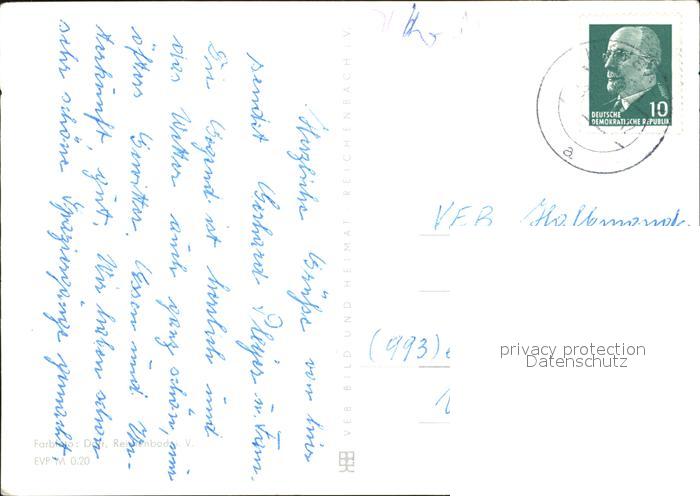 Herzliche Grüße von hier
sendet Gerhard u. Fam.
Die Gegend ist herrlich und
das Wetter auch ganz schön, nur
öfters Gewitter. Essen und Un-
terkunft, gut. Wir haben schon
sehr schöne Spaziergänge gemacht.
VEB BILD UND HEIMAT REICHENBACH I.V.
Farbfoto: Darr, V.
EVP M 0.20
10
DEUTSCHE
DEMOKRATISCHE REPUBLIK
a
VEB Halbmond
(993)
privacy protection
Datenschutz